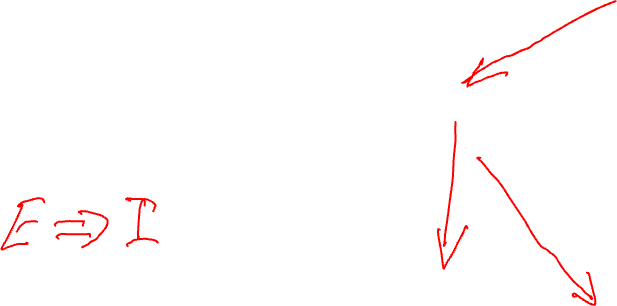 E ⇒ I